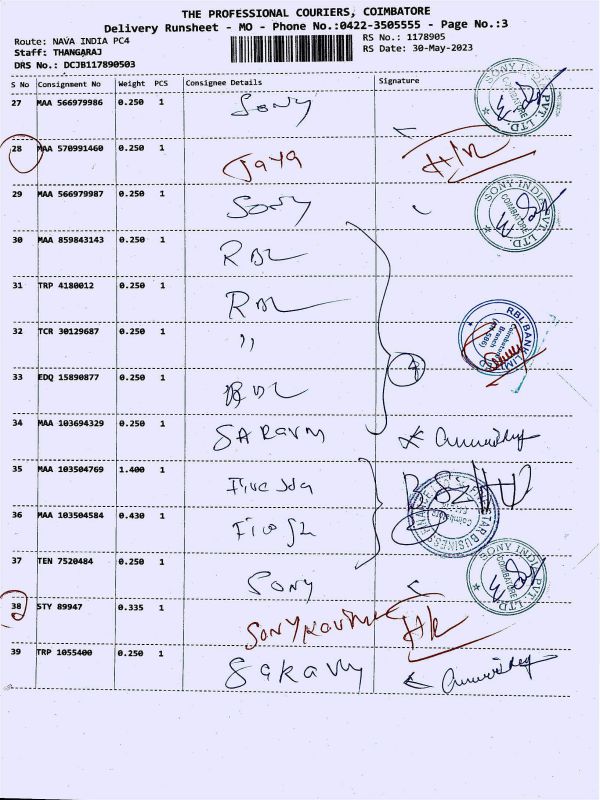 THE PROFESSIONAL COURIERS, COIMBATORE
Delivery Runsheet - MO - Phone No.:0422-3505555 - Page No.:3
Route: NAVA INDIA PC4 RS No.: 1178905
Staff: THANGARAJ RS Date: 30-May-2023
DRS No.: DCJB117890503
S No Consignment No Weight PCS Consignee Details Signature
27 MAA 566979986 0.250 1 Sony
SONY INDIA PVT. LTD. COIMBATORE
28 MAA 570991460 0.250 1 Jaya
29 MAA 566979987 0.250 1 Sony
SONY INDIA PVT. LTD. COIMBATORE
30 MAA 859843143 0.250 1 RBL
31 TRP 4180012 0.250 1 RBL
32 TCR 30129687 0.250 1 "
RBL BANK LIMITED Coimbatore Branch
4
33 EDQ 15890877 0.250 1 RBL
34 MAA 103694329 0.250 1 SARAVM
35 MAA 103504769 1.400 1 Five
36 MAA 103504584 0.430 1 Five
STAR BUSINESS FINANCE Coimbatore
37 TEN 7520484 0.250 1 Sony
SONY INDIA PVT. LTD. COIMBATORE
38 STY 89947 0.335 1 Sony
39 TRP 1055400 0.250 1